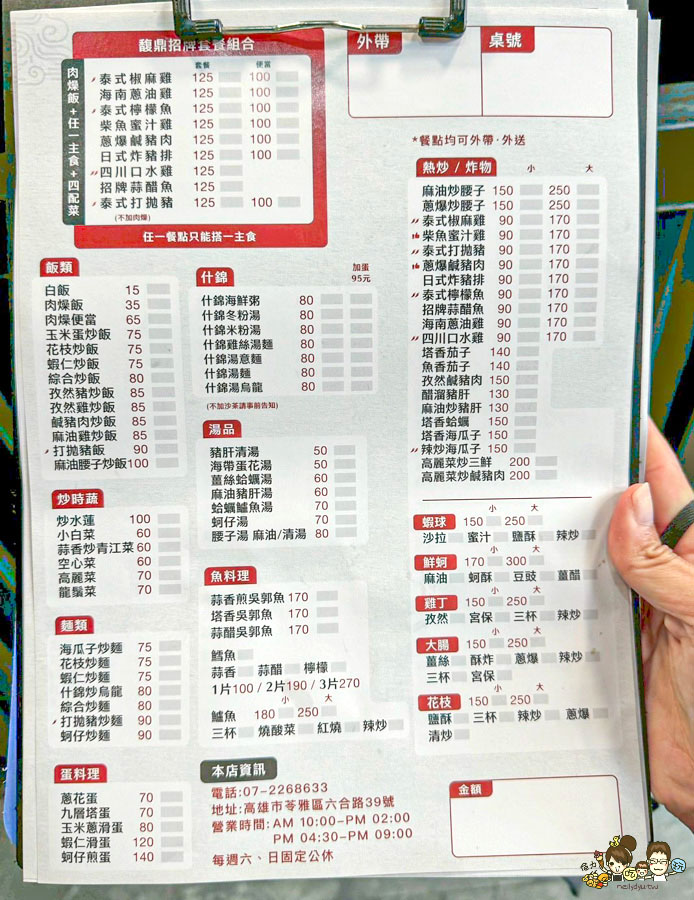 馥鼎招牌套餐組合
肉燥飯+任一主食+四配菜
套餐 便當
泰式椒麻雞 125 100
海南蔥油雞 125 100
泰式檸檬魚 125 100
柴魚蜜汁雞 125 100
蔥爆鹹豬肉 125 100
日式炸豬排 125 100
四川口水雞 125
招牌蒜醋魚 125
泰式打拋豬 125 100
(不加肉燥)
任一餐點只能搭一主食
外帶
桌號
*餐點均可外帶·外送
飯類
白飯 15
肉燥飯 35
肉燥便當 65
玉米蛋炒飯 75
花枝炒飯 75
蝦仁炒飯 75
綜合炒飯 80
孜然豬炒飯 85
孜然雞炒飯 85
鹹豬肉炒飯 85
麻油雞炒飯 85
打拋豬飯 90
麻油腰子炒飯 100
炒時蔬
炒水蓮 100
小白菜 60
蒜香炒青江菜 60
空心菜 60
高麗菜 70
龍鬚菜 70
麵類
海瓜子炒麵 75
花枝炒麵 75
蝦仁炒麵 75
什錦炒烏龍 80
綜合炒麵 80
打拋豬炒麵 90
蚵仔炒麵 90
蛋料理
蔥花蛋 70
九層塔蛋 70
玉米蔥滑蛋 80
蝦仁滑蛋 120
蚵仔煎蛋 140
什錦
加蛋
95元
什錦海鮮粥 80
什錦冬粉湯 80
什錦米粉湯 80
什錦雞絲湯麵 80
什錦湯意麵 80
什錦湯麵 80
什錦湯烏龍 80
(不加沙茶請事前告知)
湯品
豬肝清湯 50
海帶蛋花湯 50
薑絲蛤蠣湯 60
麻油豬肝湯 60
蛤蠣鱸魚湯 70
蚵仔湯 70
腰子湯 麻油/清湯 80
魚料理
蒜香煎吳郭魚 170
塔香吳郭魚 170
蒜醋吳郭魚 170
鱈魚
蒜香 蒜醋 檸檬
1片100 / 2片190 / 3片270
小 大
鱸魚 180 250
三杯 燒酸菜 紅燒 辣炒
本店資訊
電話:07-2268633
地址:高雄市苓雅區六合路39號
營業時間:AM 10:00-PM 02:00
PM 04:30-PM 09:00
每週六、日固定公休
熱炒 / 炸物 小 大
麻油炒腰子 150 250
蔥爆炒腰子 150 250
泰式椒麻雞 90 170
柴魚蜜汁雞 90 170
泰式打拋豬 90 170
蔥爆鹹豬肉 90 170
日式炸豬排 90 170
泰式檸檬魚 90 170
招牌蒜醋魚 90 170
海南蔥油雞 90 170
四川口水雞 90 170
塔香茄子 140
魚香茄子 140
孜然鹹豬肉 150
醋溜豬肝 130
麻油炒豬肝 130
塔香蛤蠣 150
塔香海瓜子 150
辣炒海瓜子 150
高麗菜炒三鮮 200
高麗菜炒鹹豬肉 200
小 大
蝦球 150 250
沙拉 蜜汁 鹽酥 辣炒
小 大
鮮蚵 170 300
麻油 蚵酥 豆豉 薑醋
小 大
雞丁 150 250
孜然 宮保 三杯 辣炒
小 大
大腸 150 250
薑絲 酥炸 蔥爆 辣炒
三杯 宮保
小 大
花枝 150 250
鹽酥 三杯 辣炒 蔥爆
清炒
金額
neilyduy.tw